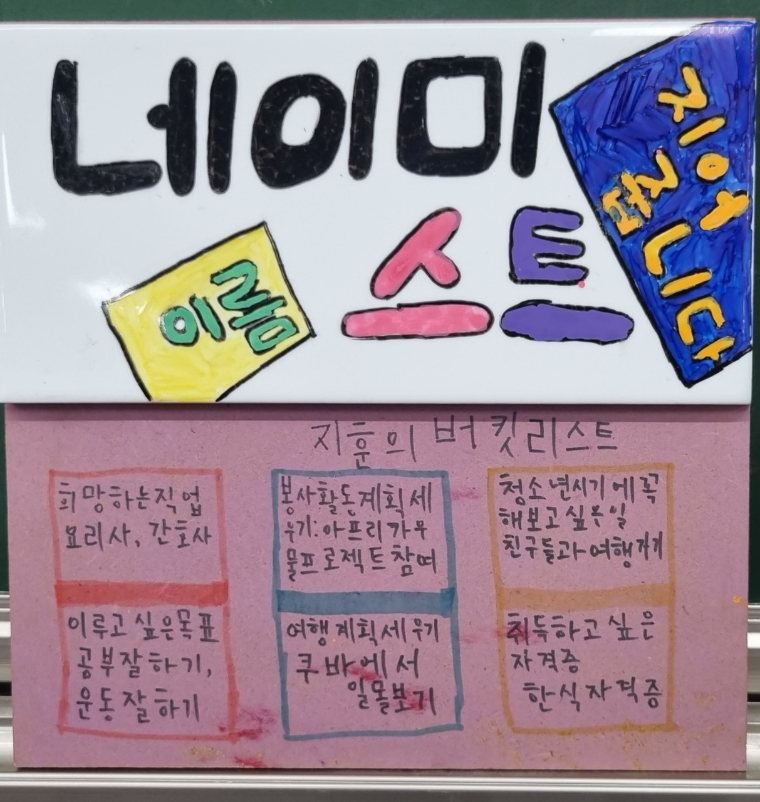 네이미
스트
이름
지어
줍
니다
지훈의 버킷리스트
희망하는직업
요리사, 간호사
이루고 싶은목표
공부잘하기,
운동잘하기
봉사활동계획세
우기:아프리카우
물프로젝트참여
여행계획세우기
쿠바에서
일몰보기
청소년시기에꼭
해보고싶은일
친구들과여행가기
취득하고싶은
자격증
한식자격증